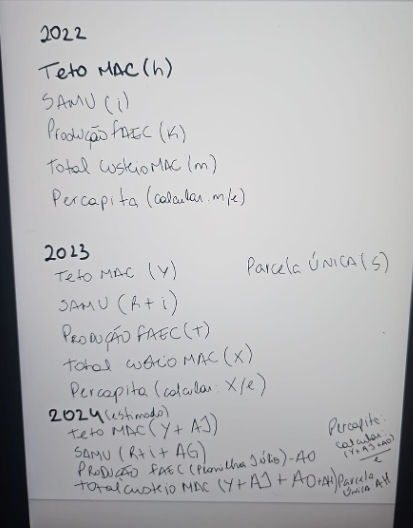 2022
Teto MAC (h)
SAMU (i)
Produção FAEC (K)
Total custeio MAC (m)
Percapita (calcular: m/e)
2023
Teto MAC (Y)
Parcela ÚNICA (S)
SAMU (R+i)
PRODUÇÃO FAEC (T)
total custeio MAC (X)
Percapita (calcular: X/e)
2024 (estimado)
Teto MAC (Y + AJ)
SAMU (R+i + AG)
PRODUÇÃO FAEC (Planilha Júlio) - AO
total custeio MAC (Y + AJ + AO + AH)
Parcela única AH
Percapita:
calcular
(Y + AJ + AO)
e